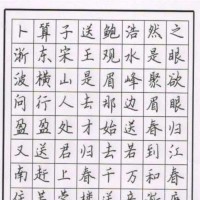 卜算子送鲍浩然之
浙东宋王观水是眼
波横山是眉峰聚欲
问行人去那边眉眼
盈盈处才始送春归
又送君归去若到江
南赶上春千万和春